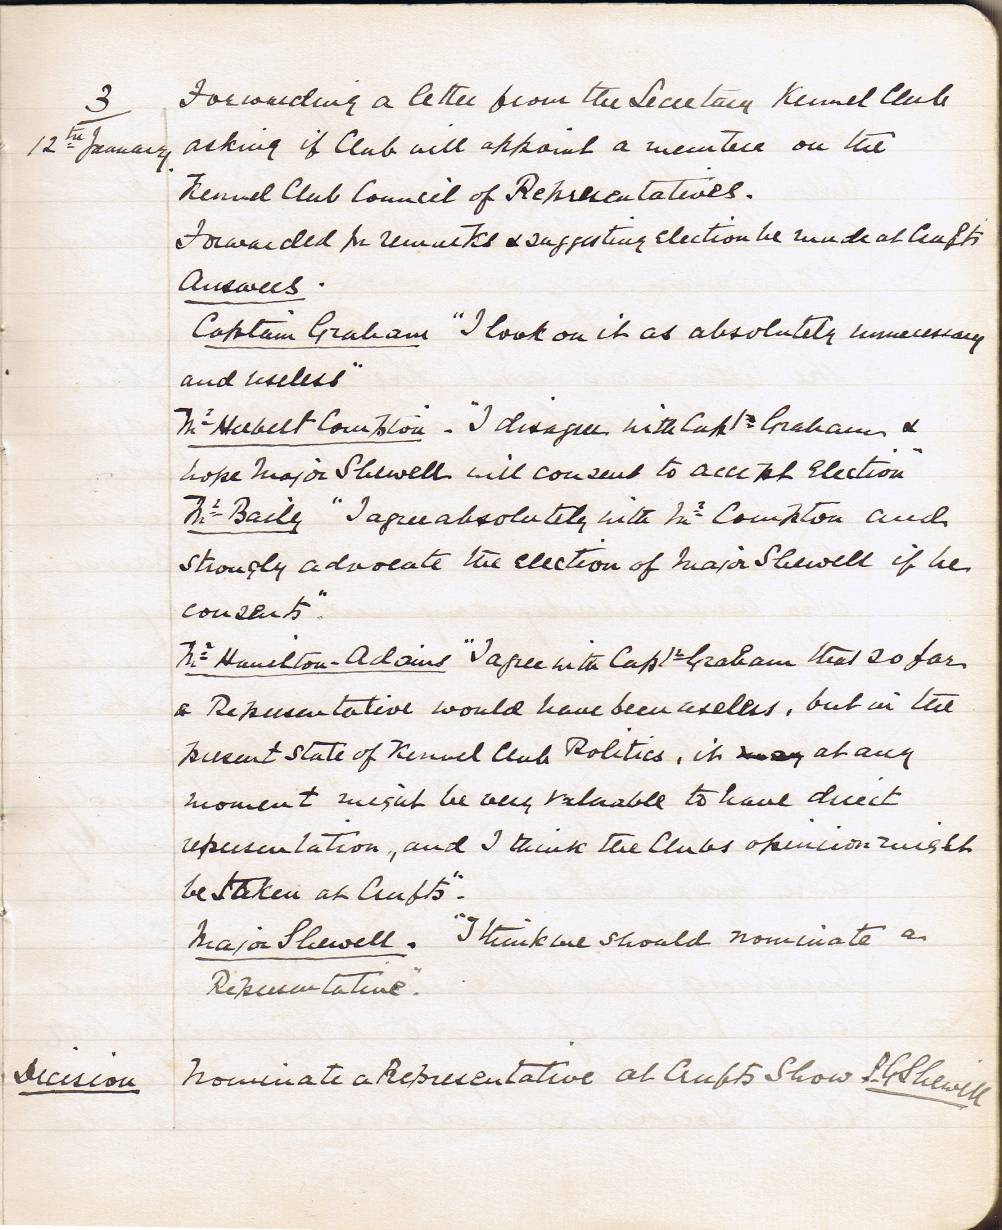 3
12th January.
Forwarding a letter from the Secretary Kennel Club
asking if Club will appoint a member on the
Kennel Club Council of Representatives.
Forwarded for remarks & suggesting election be made at Crufts
Answers.
Captain Graham "I look on it as absolutely unnecessary
and useless"
Mr Herbert Compton - "I disagree with Captn Graham &
hope Major Shewell will consent to accept Election"
Mr Baily "I agree absolutely with Mr Compton and
strongly advocate the election of Major Shewell if he
consents".
Mr Hamilton-Adams "I agree with Captn Graham that so far
a Representative would have been useless, but in the
present state of Kennel Club Politics, it may at any
moment might be very valuable to have direct
representation, and I think the Clubs opinion might
be taken at Crufts".
Major Shewell. "I think we should nominate a
Representative".
Decision Nominate a Representative at Crufts Show Shewell